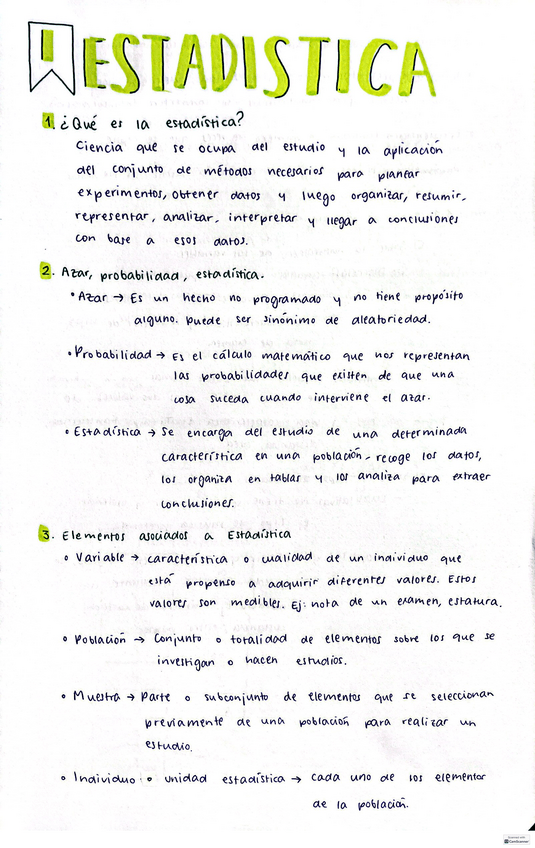 1 ESTADISTICA
1. ¿Qué es la estadística?
Ciencia que se ocupa del estudio y la aplicación
del conjunto de métodos necesarios para planear
experimentos, obtener datos y luego organizar, resumir,
representar, analizar, interpretar y llegar a conclusiones
con base a esos datos.
2. Azar, probabilidad, estadística.
• Azar → Es un hecho no programado y no tiene propósito
alguno. Puede ser sinónimo de aleatoriedad.
• Probabilidad → Es el cálculo matemático que nos representan
las probabilidades que existen de que una
cosa suceda cuando interviene el azar.
• Estadística → Se encarga del estudio de una determinada
característica en una población - recoge los datos,
los organiza en tablas y los analiza para extraer
conclusiones.
3. Elementos asociados a Estadística
• Variable → característica o cualidad de un individuo que
está propenso a adquirir diferentes valores. Estos
valores son medibles. Ej: nota de un examen, estatura.
• Población → Conjunto o totalidad de elementos sobre los que se
investigan o hacen estudios.
• Muestra → Parte o subconjunto de elementos que se seleccionan
previamente de una población para realizar un
estudio.
• Individuo o unidad estadística → cada uno de los elementos
de la población.
CamScanner